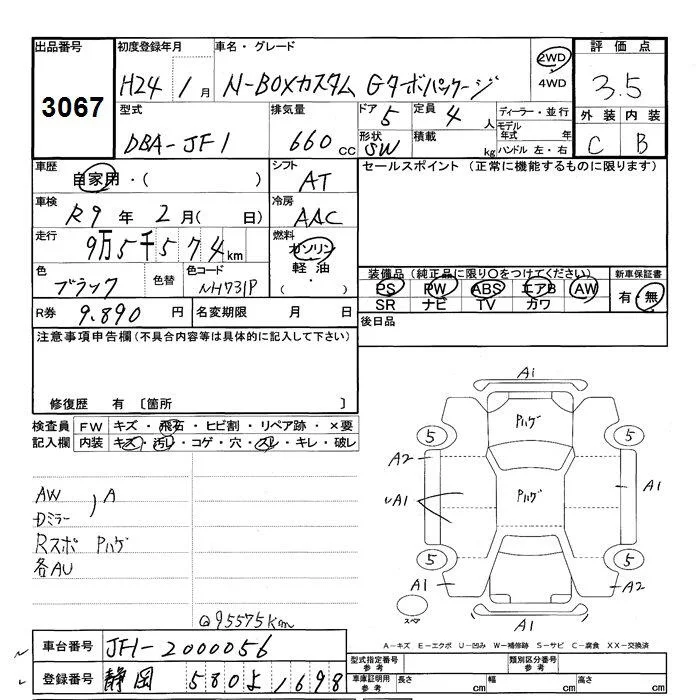 出品番号 初度登録年月 車名・グレード 評価点
3067 H24 1月 N-BOXカスタム Gターボパッケージ 2WD 4WD 3.5
型式 排気量 ドア 5 定員 4人 ディーラー・並行 外装 内装
DBA-JF1 660cc 形状 SW 積載 kg モデル年式 年 C B
ハンドル 左・右
車歴 自家用・( ) シフト AT セールスポイント (正常に機能するものに限ります)
車検 R9年 2月( 日) 冷房 AAC
走行 9万5千574km 燃料 ガソリン
軽油・( )
色 ブラック 色替 色コード NH731P 装備品(純正品に限り○をつけてください) 新車保証書
PS PW ABS エアB AW 有・無
SR ナビ TV カワ
R券 9.890円 名変期限 月 日 後日品
注意事項申告欄(不具合内容等は具体的に記入して下さい)
修復歴 有 [箇所 ]
検査員 FW キズ・飛石・ヒビ割・リペア跡・×要
記入欄 内装 キズ・汚レ・コゲ・穴・スレ・キレ・破レ
AW
Dミラー ) A
Rスポ Pハゲ
各AU
@95575km
A1
Pハゲ
5 5
A2
A1 Pハゲ A1
5 5
A1 A2
スペア A1
A-キズ E-エクボ U-凹み W-補修跡 S-サビ C-腐食 XX-交換済
車台番号 JF1-2000056 型式指定番号 参考 類別区分番号 参考
登録番号 静岡 580よ1698 車庫証明用 参考 長さ cm 幅 cm 高さ cm